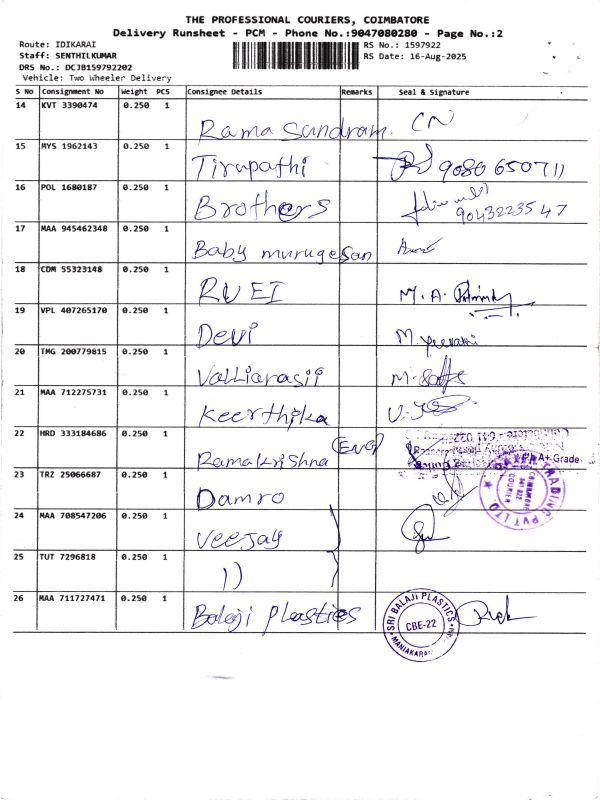 THE PROFESSIONAL COURIERS, COIMBATORE
Delivery Runsheet - PCM - Phone No.:9047080280 - Page No.:2
Route: IDIKARAI RS No.: 1597922
Staff: SENTHILKUMAR RS Date: 16-Aug-2025
DRS No.: DCJB159792202
Vehicle: Two Wheeler Delivery
S No Consignment No Weight PCS Consignee Details Remarks Seal & Signature
14 KVT 3390474 0.250 1
Rama Sundram CN
15 MYS 1962143 0.250 1
Tirupathi 9080650711
16 POL 1680187 0.250 1
Brothers
9043223547
17 MAA 945462348 0.250 1
Baby murugesan
18 CDM 55323148 0.250 1
RUEI M. A.
19 VPL 407265170 0.250 1
Devi M.
20 TMG 200779815 0.250 1
Valliarasii M.
21 MAA 712275731 0.250 1
Keerthika
22 HRD 333184686 0.250 1
Ramakrishna (Eng) A+ Grade
23 TRZ 25066687 0.250 1
Damro
TRADING PVT LTD
COIMBATORE
641 022
COURIER
24 MAA 708547206 0.250 1
Veejay
25 TUT 7296818 0.250 1
11
26 MAA 711727471 0.250 1
Balaji Plastics
SRI BALAJI PLASTICS
CBE-22